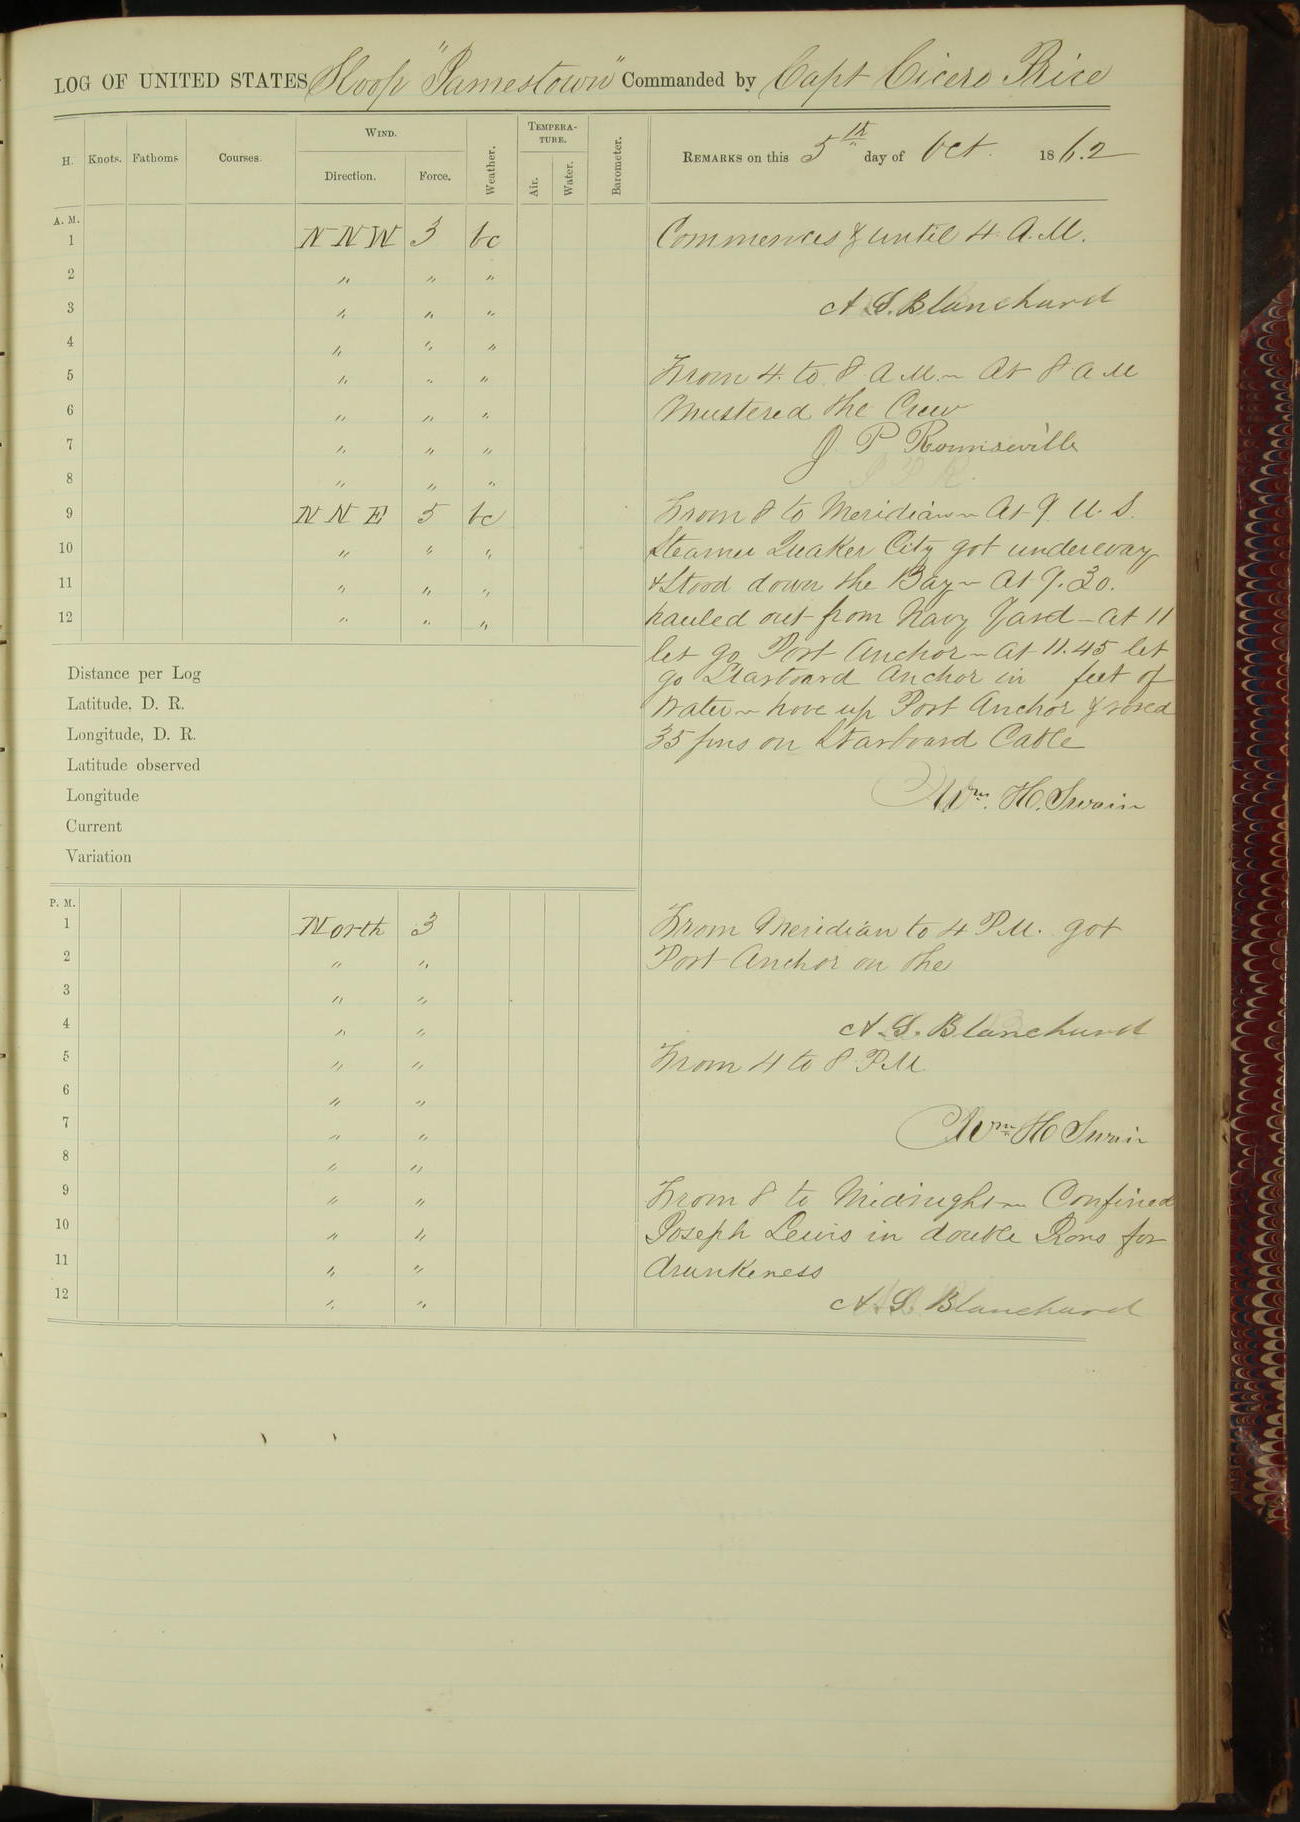 LOG OF UNITED STATES Sloop "Jamestown" Commanded by Capt Cicero Price
H. Knots. Fathoms Courses. WIND. Direction. Force. Weather. TEMPERATURE. Air. Water. Barometer. REMARKS on this 5th day of Oct. 1862
A. M.
1 NNW 3 bc Commences & until 4 A.M.
2 " " "
3 " " " A S. Blanchard
4 " " "
5 " " " From 4 to 8 A M ~ At 8 A M
6 " " " Mustered the Crew
7 " " " J P Rounseville
8 " " "
9 NNE 5 bc From 8 to Meridian ~ At 9 U. S.
10 " " " Steamer Quaker City got underway
11 " " " & Stood down the Bay ~ At 9.30.
12 " " " hauled out from Navy Yard - at 11
let go Port Anchor ~ at 11.45 let
Distance per Log go Starboard Anchor in feet of
Latitude, D. R. Water ~ hove up Port Anchor & roved
Longitude, D. R. 35 fms on Starboard Cable
Latitude observed
Longitude Wm. H. Swain
Current
Variation
P. M.
1 North 3 From Meridian to 4 P.M. got
2 " " Port Anchor on the
3 " "
4 " " A. S. Blanchard
5 " " From 4 to 8 P.M
6 " "
7 " " Wm H Swain
8 " "
9 " " From 8 to Midnight ~ Confined
10 " " Joseph Lewis in double Irons for
11 " " drunkeness
12 " " A. S. Blanchard